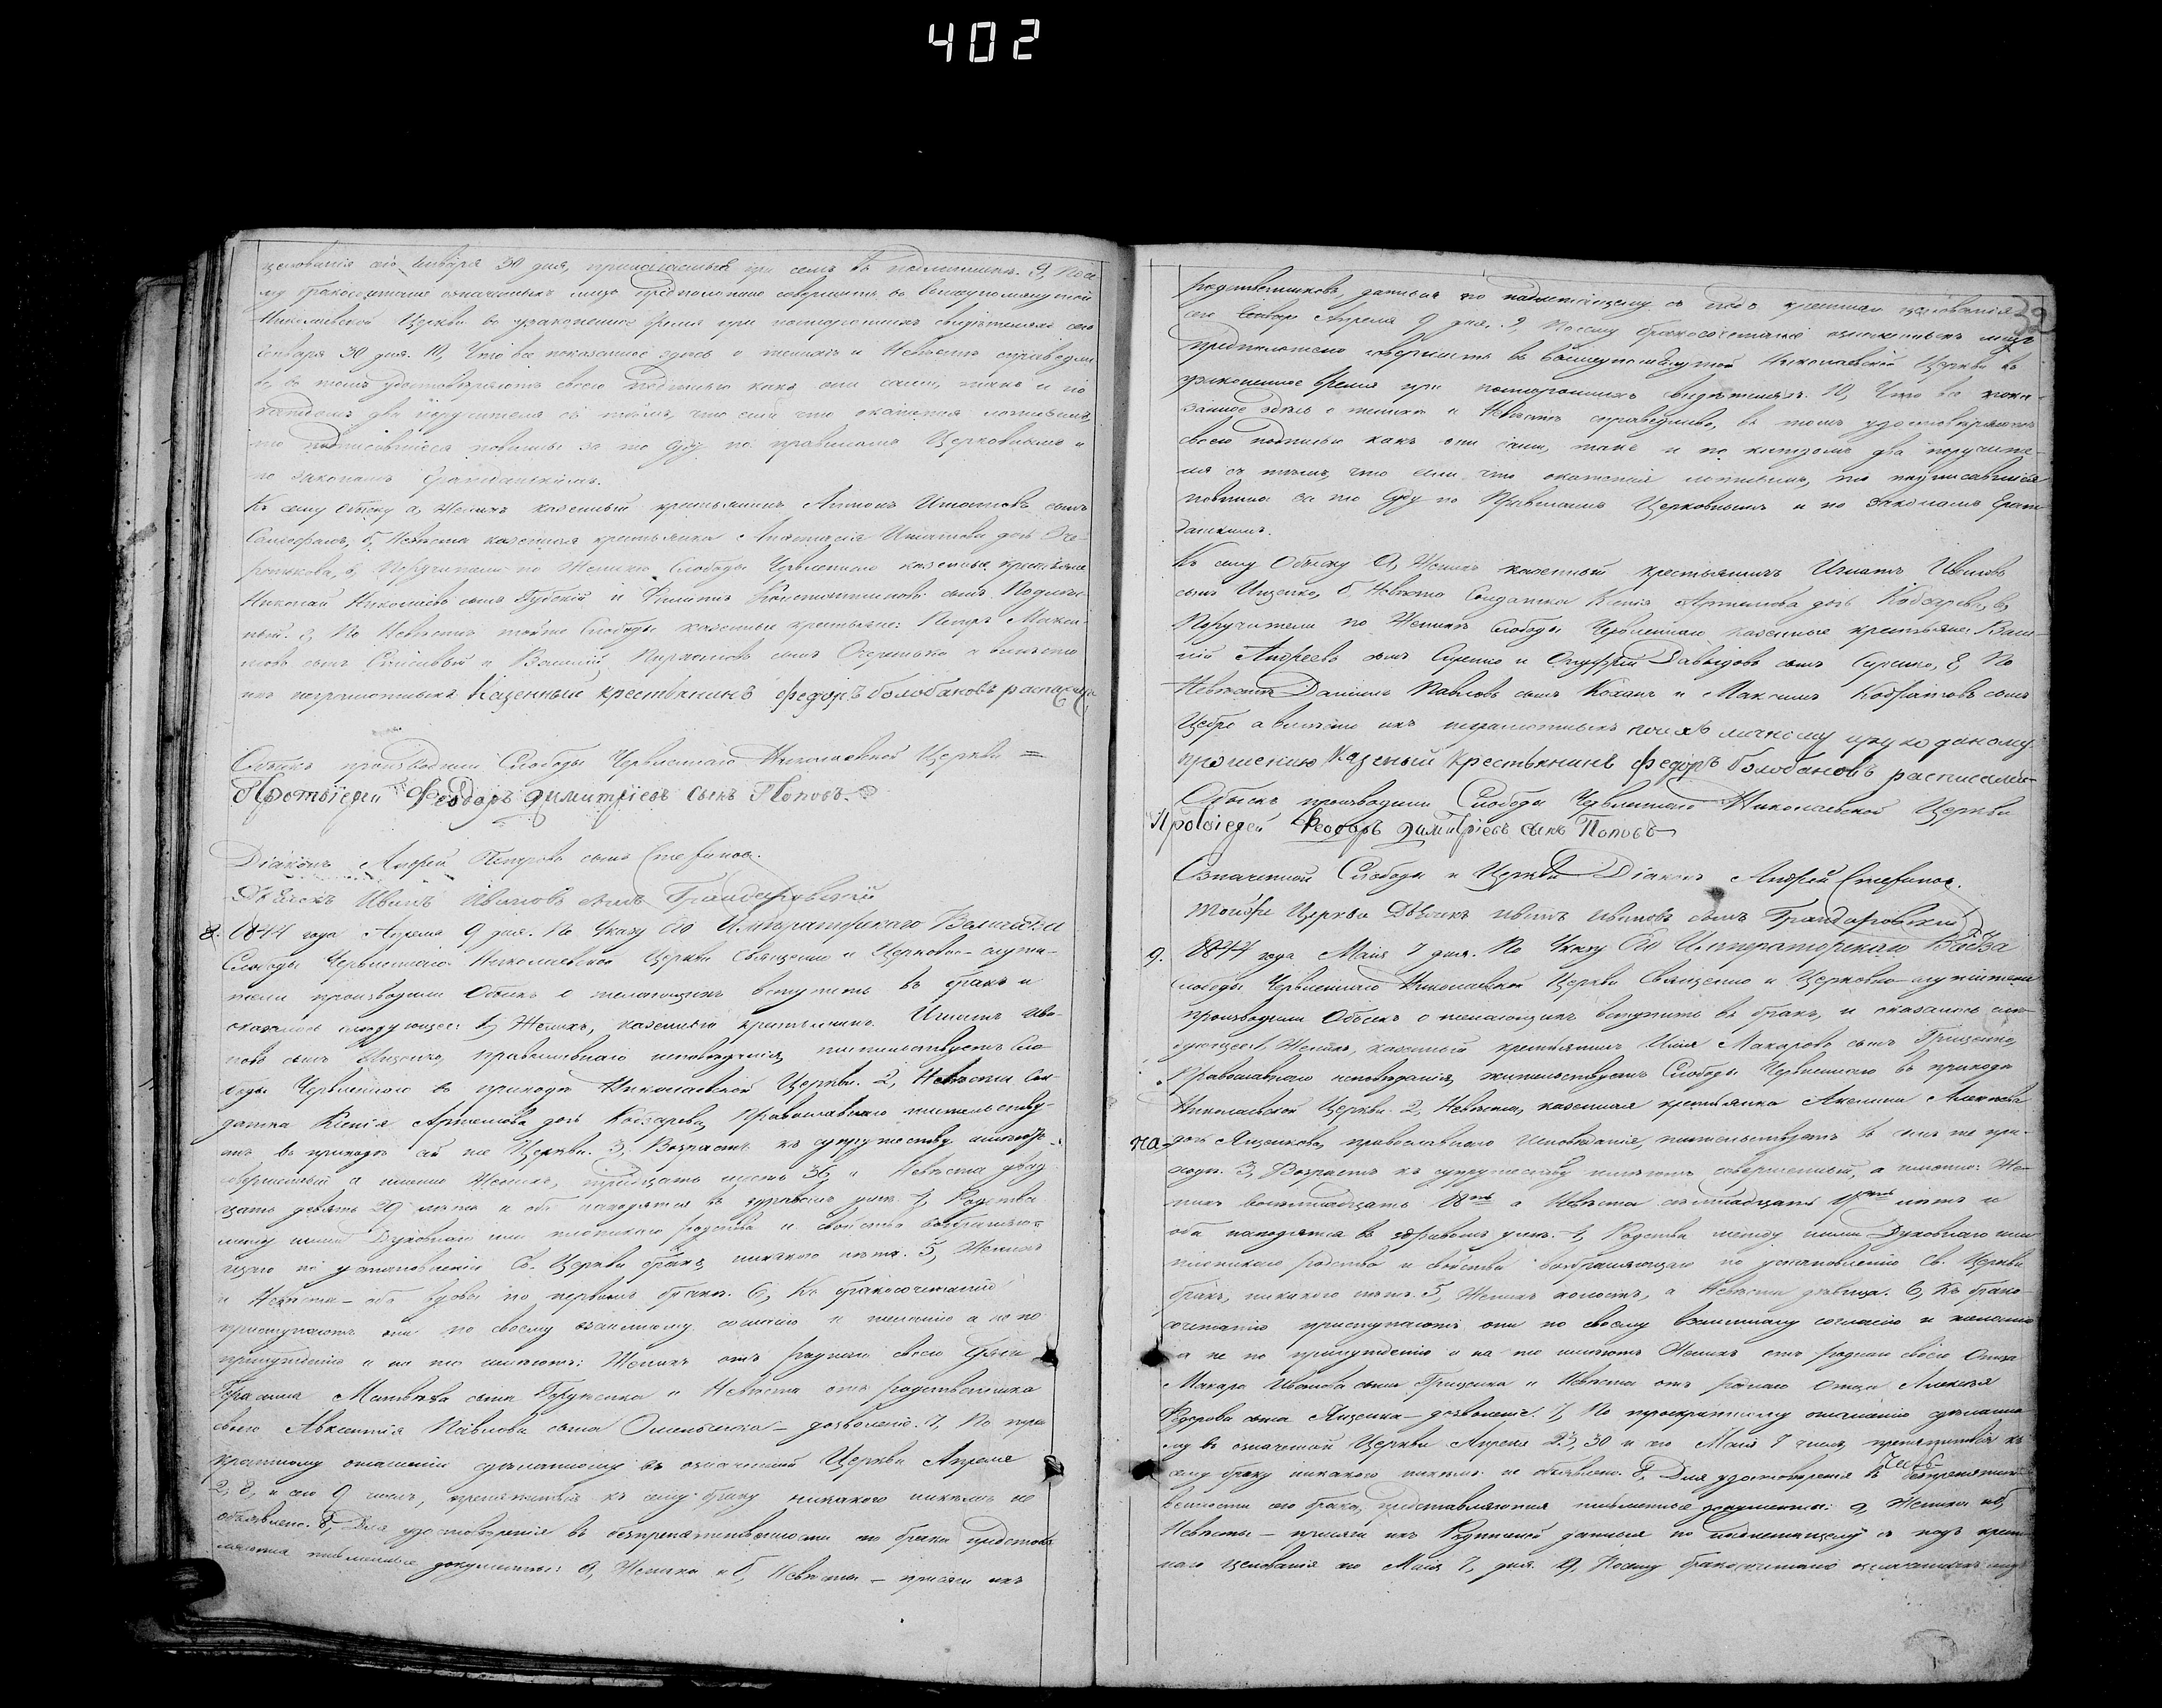 402
целованія сего Января 30 дня, прилагаемыя при семъ въ подлинникѣ. 9, По се-
му бракосочетаніе означенныхъ лицъ предположено совершить въ вышеупомянутой
Николаевской Церкви въ узаконенное время при постороннихъ свидѣтеляхъ сего
Января 30 дня. 10, Что все показанное здѣсь о женихѣ и Невѣстѣ справедли-
во, въ томъ удостовѣряютъ своею подписью какъ они сами, такъ и по
каждомъ два поручителя съ тѣмъ, что если что окажется ложнымъ,
то подписавшіеся повинны за то суду по правиламъ Церковнымъ и
по законамъ Гражданскимъ.
Къ сему обыску а, Женихъ казенный крестьянинъ Антонъ Игнатовъ сынъ
б, Невѣста казенная крестьянка Анастасія Игнатова дочь Оче-
ретькова, в, Поручители по Женихѣ Слободы Червленнаго казенные крестьяне
Николай Николаевъ сынъ Дубскій и Филиппъ Константиновъ сынъ
г, По Невѣстѣ тойже Слободы казенные крестьяне: Петръ
сынъ и Василій сынъ Очеретько а вмѣсто
ихъ неграмотныхъ Казенный крестьянинъ Федоръ Болобановъ расписался
Обыскъ производили Слободы Червленнаго Николаевской Церкви =
Протоіерей Феодоръ Димитріевъ сынъ Поповъ.
Діаконъ Андрей Петровъ сынъ Стефановъ.
Дьячекъ Иванъ Ивановъ сынъ
8. 1844 года Апреля 9 дня. По Указу Его Императорскаго Величества
Слободы Червленнаго Николаевской Церкви Священно и Церковно-служи-
тели производили Обыскъ о желающихъ вступить въ бракъ и
оказалось слѣдующее: 1, Женихъ, казенный крестьянинъ Игнатъ Ива-
новъ сынъ Ищенко, православнаго исповѣданія, жительствуетъ Сло-
боды Червленнаго въ приходѣ Николаевской Церкви. 2, Невѣста Сол-
датка Ксенія Артемова дочь Кобзарева, Православнаго жительству-
етъ въ приходѣ сей же Церкви. 3, Возрастъ къ супружеству имѣютъ
совершенный а именно Женихъ, тридцать шесть 36, а Невѣста двад-
цать девять 29 лѣтъ и оба находятся въ здравомъ умѣ. 4, Родства
между ними Духовнаго или плотскаго родства и свойства возбраняю-
щаго по установленію Св. Церкви бракъ, никакого нѣтъ. 5, Женихъ
и Невѣста - оба вдовы по первомъ бракѣ. 6, Къ бракосочетанію
приступаютъ они по своему взаимному согласію и желанію а не по
принужденію и на то имѣютъ: Женихъ отъ роднаго своего Дяди
Герасима Матвѣева сына и Невѣста отъ родственника
своего Авксентія Павлова сына Омельченка - дозволеніе. 7, По трое-
кратному оглашенію сдѣланному въ означенной Церкви Апреля
2, 8, и сего 9 числъ, препятствія къ сему браку никакого никемъ не
объявлено. 8, Для удостовѣренія въ безпрепятственности сего брака предстов-
ляются письменные документы: а, Жениха и б, Невѣсты - присяги ихъ
29
родственниковъ, данныя по надлежащему съ подъ крестнаго целованія
сего Января Апреля 9 дня. 9, Посему бракосочетаніе означенныхъ лицъ
предположено совершить въ вышеупомянутой Николаевской Церкви въ
узаконенное время при постороннихъ свидѣтеляхъ. 10, Что все пока-
занное здѣсь о женихѣ и Невѣстѣ справедливо, въ томъ удостовѣряютъ
своею подписью какъ они сами, такъ и по каждомъ два поручите-
ля съ тѣмъ, что если что окажется ложнымъ, то подписавшіеся
повинны за то суду по Правиламъ Церковнымъ и по Законамъ Граж-
данскимъ.
Къ сему Обыску а, Женихъ казенный крестьянинъ Игнатъ Ивановъ
сынъ Ищенко, б, Невѣста Солдатка Ксенія Артемова дочь Кобзарева, в,
Поручители по Женихѣ Слободы Червленнаго казенные крестьяне: Васи-
лій Андреевъ сынъ Супенко и Онуфрій Давыдовъ сынъ Супенко, г, По
Невѣстѣ Даніилъ Павловъ сынъ Коханъ и Максимъ Кодратовъ сынъ
а вместо ихъ неграмотныхъ личному
прошенію Казеный Крестьянинъ Федоръ Болобановъ расписался
Обыскъ производили Слободы Червленнаго Николаевской Церкви
Протоіерей Феодоръ Димитріевъ сынъ Поповъ
Означенной Слободы и Церкви Діаконъ Андрей Стефановъ.
Тойже Церкви Дьячекъ Иванъ Ивановъ сынъ
9. 1844 года Маія 7 дня. По Указу Его Императорскаго
Слободы Червленнаго Николаевской Церкви Священно и Церковно-служители
производили Обыскъ о желающихъ вступить въ бракъ, и оказалось слѣ-
дующее: 1, Женихъ, казенный крестьянинъ Илія Макаровъ сынъ Гриценко,
Православнаго исповѣданія, жительствуетъ Слободы Червленнаго въ приходѣ
Николаевской Церкви. 2, Невѣста, казенная крестьянка Акелина Алексѣева
дочь Яценкова, православнаго Исповѣданія, жительствуетъ въ семъ же при-
ходѣ. 3, Возрастъ къ супружеству имѣютъ совершенный, а именно: Же-
нихъ восемнадцать 18ть а Невѣста семнадцать 17ть лѣтъ и
оба находятся въ здравомъ умѣ. 4, Родства между ними Духовнаго или
плотскаго родства и свойства возбраняющаго по установленію Св. Церкви
бракъ, никакого нѣтъ. 5, Женихъ холостъ, а Невѣста дѣвица. 6, Къ брако-
сочетанію приступаютъ они по своему взаимному согласію и желанію
а не по принужденію и на то имѣютъ Женихъ отъ роднаго своего Отца
Макара Иванова сына Гриценка и Невѣста отъ роднаго Отца Алексѣя
Федорова сына Яценка - дозволеніе. 7, По троекратному оглашенію сдѣланно-
му въ означенной Церкви Апреля 23, 30 и сего Маія 7 числъ, препятствія къ
сему браку никакого никемъ не объявлено. 8, Для удостовѣренія въ безпрепятст-
венности сего брака, представляются письменные документы: а, Жениха и б,
Невѣсты - присяги ихъ Родителей данныя по надлежащему съ подъ крест-
наго целованія сего Маія 7, дня. 9, Посему бракосочетаніе означенныхъ лицъ